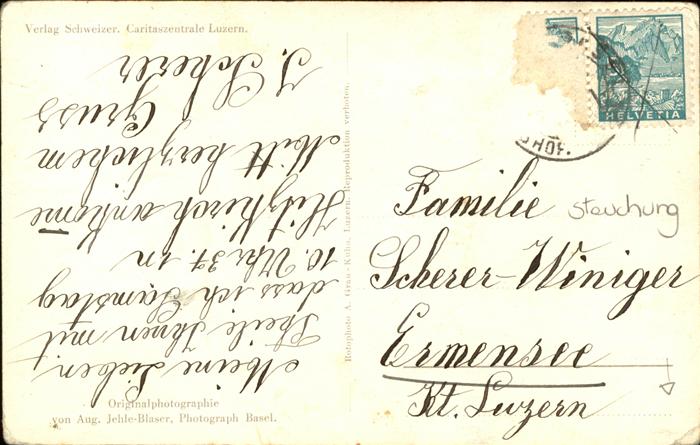 Verlag Schweizer. Caritaszentrale Luzern.
Meine Lieben,
Theile Ihnen mit
dass ich Samstag
10. Uhr 37. in
Hitzkirch ankome
Mitt herzlichem
Gruss
J. Scherer
Originalphotographie
von Aug. Jehle-Blaser, Photograph Basel.
Rotophoto A. Grau-Kuhn, Luzern. Reproduktion verboten.
HELVETIA
Familie
stauchung
Scherer-Winiger
Ermensee
Kt. Luzern